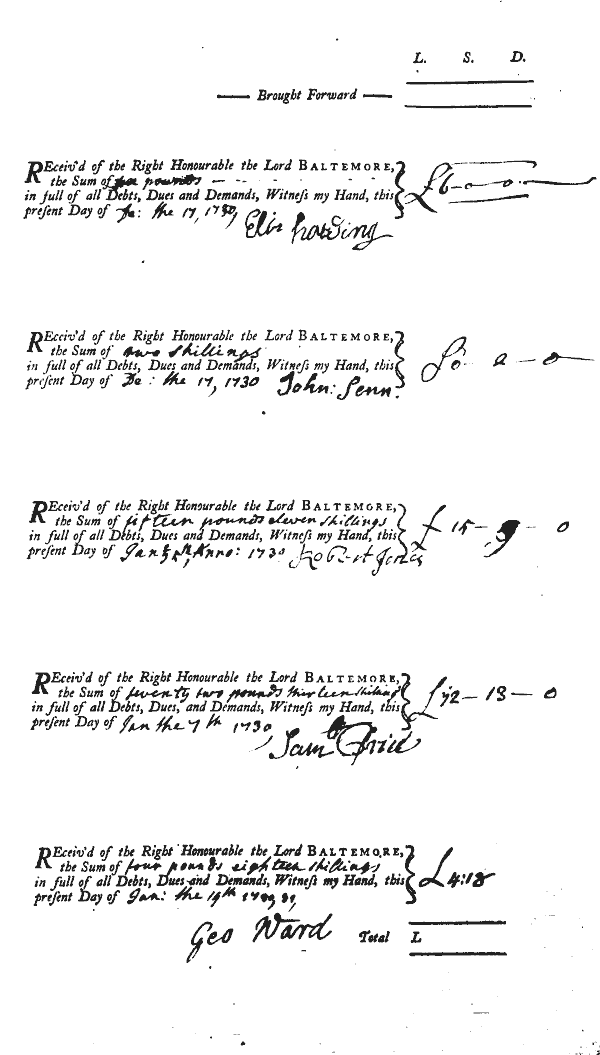 L. S. D.
Brought Forward
REceiv'd of the Right Honourable the Lord BALTEMORE,
the Sum of six pounds
in full of all Debts, Dues and Demands, Witneſs my Hand, this
preſent Day of De: the 17, 1730
£6-0-0
Harding
REceiv'd of the Right Honourable the Lord BALTEMORE,
the Sum of two shillings
in full of all Debts, Dues and Demands, Witneſs my Hand, this
preſent Day of De: the 17, 1730 John: Penn.
£0 2 - 0
REceiv'd of the Right Honourable the Lord BALTEMORE,
the Sum of fifteen pounds eleven shillings
in full of all Debts, Dues and Demands, Witneſs my Hand, this
preſent Day of Anno: 1730 Robert Jones
£15- - 0
REceiv'd of the Right Honourable the Lord BALTEMORE,
the Sum of seventy two pounds thirteen shillings
in full of all Debts, Dues, and Demands, Witneſs my Hand, this
preſent Day of Jan the 7th 1730
£72-13-0
Sam Price
REceiv'd of the Right Honourable the Lord BALTEMORE,
the Sum of four pounds eighteen shillings
in full of all Debts, Dues and Demands, Witneſs my Hand, this
preſent Day of Jan: the 19th
£4:18
Geo Ward Total L